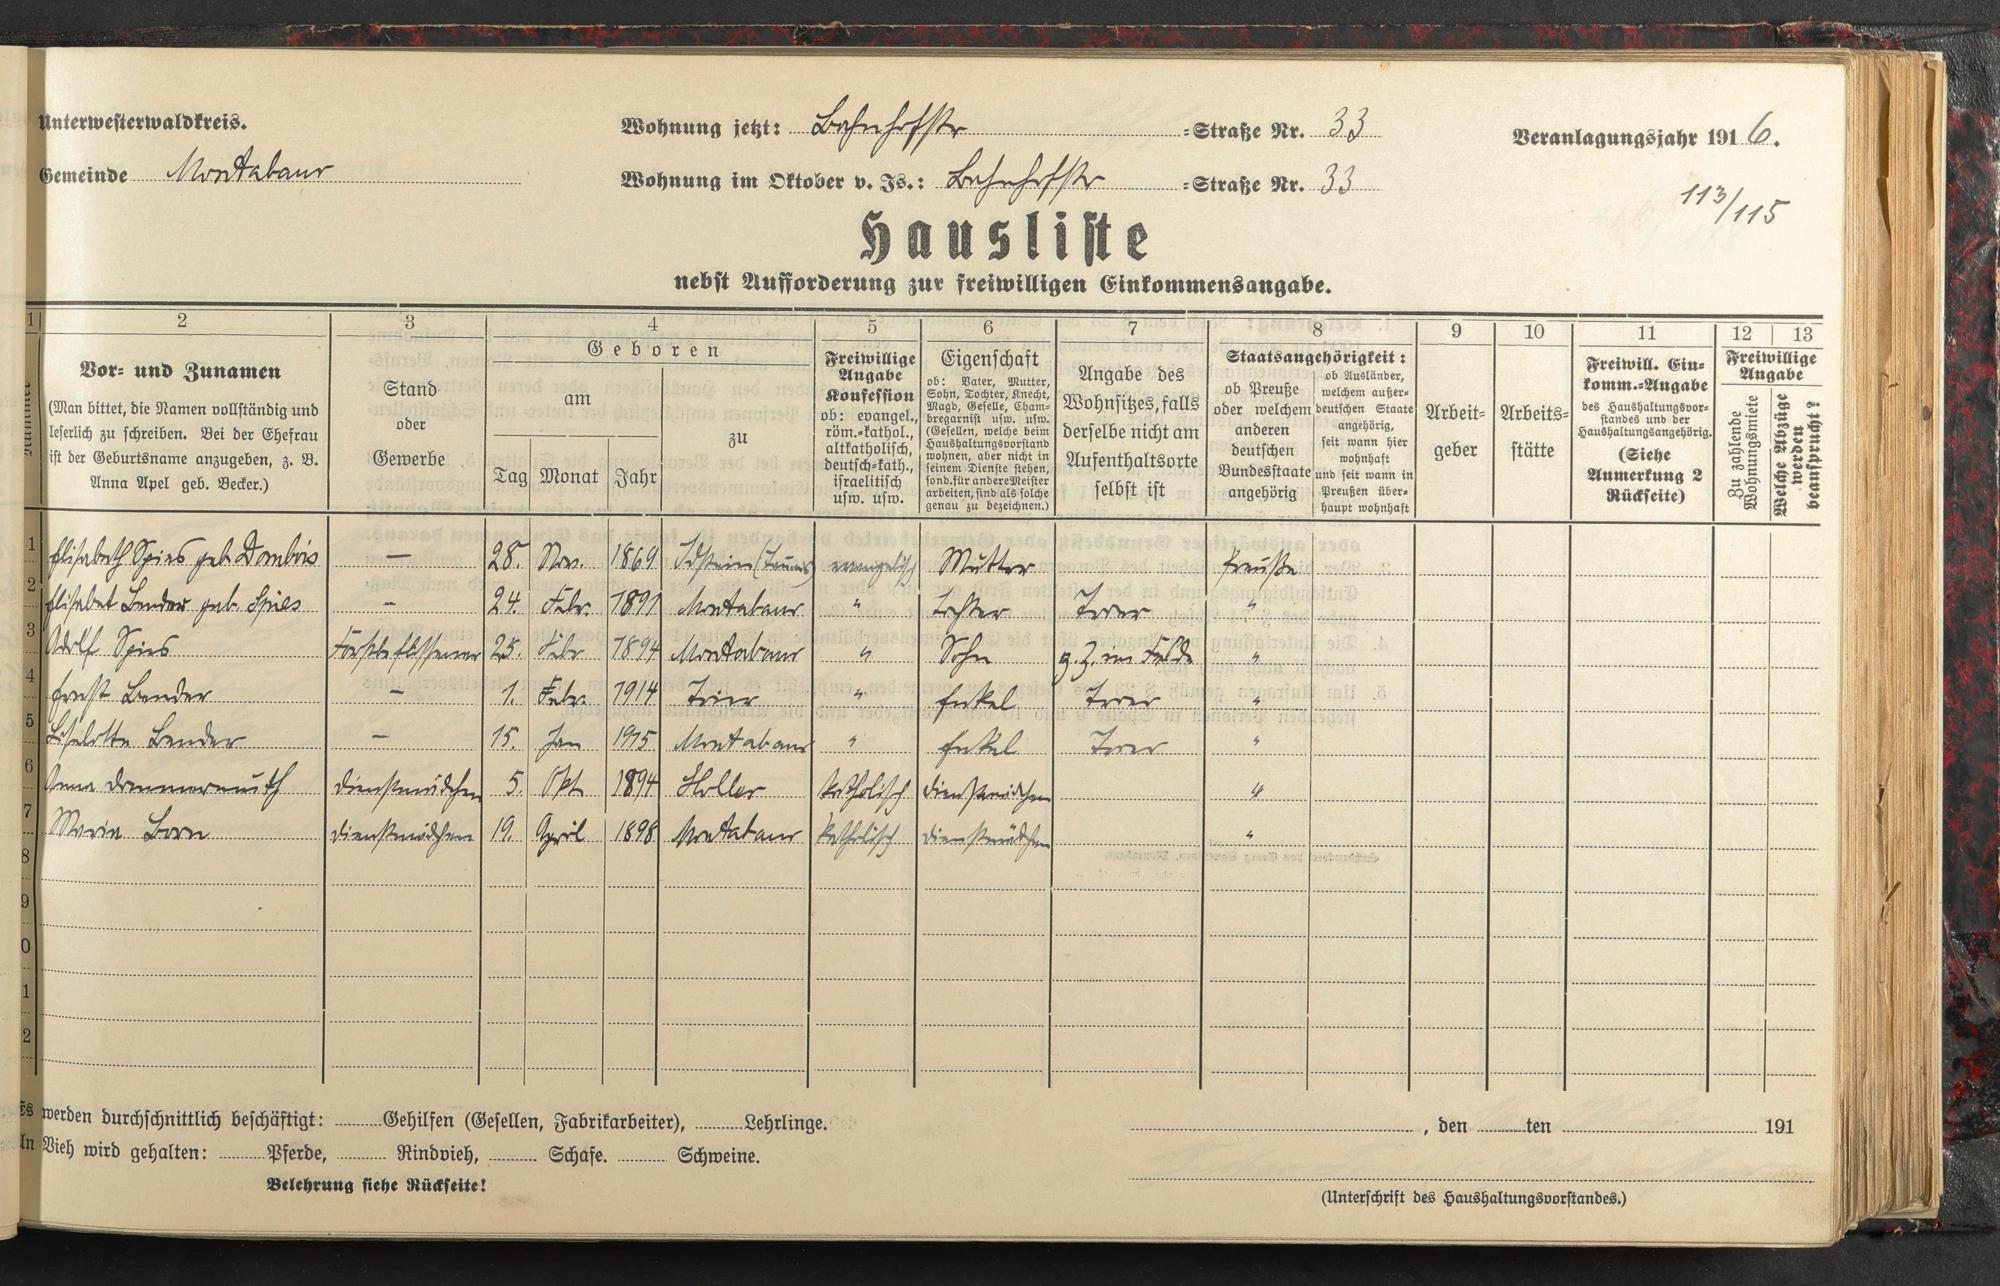 Unterwesterwaldkreis.
Wohnung jetzt: Bahnhofstr -Straße Nr. 33
Veranlagungsjahr 1916.
Gemeinde Montabaur
Wohnung im Oktober v. Js.: Bahnhofstr -Straße Nr. 33
113/115
Hausliste
nebst Aufforderung zur freiwilligen Einkommensangabe.
1 2 3 4 5 6 7 8 9 10 11 12 13
Nummer
Vor- und Zunamen
(Man bittet, die Namen vollständig und
leserlich zu schreiben. Bei der Ehefrau
ist der Geburtsname anzugeben, z. B.
Anna Apel geb. Becker.)
Stand
oder
Gewerbe
Geboren
am
Tag Monat Jahr
zu
Freiwillige
Angabe
Konfession
ob: evangel.,
röm.-kathol.,
altkatholisch,
deutsch-kath.,
israelitisch
usw. usw.
Eigenschaft
ob: Vater, Mutter,
Sohn, Tochter, Knecht,
Magd, Geselle, Cham-
bregarnist usw. usw.
(Gesellen, welche beim
Haushaltungsvorstand
wohnen, aber nicht in
seinem Dienste stehen,
sond. für andere Meister
arbeiten, sind als solche
genau zu bezeichnen.)
Angabe des
Wohnsitzes, falls
derselbe nicht am
Aufenthaltsorte
selbst ist
Staatsangehörigkeit:
ob Preuße
oder welchem
anderen
deutschen
Bundesstaate
angehörig
ob Ausländer,
welchem außer-
deutschen Staate
angehörig,
seit wann hier
wohnhaft
und seit wann in
Preußen über-
haupt wohnhaft
Arbeit-
geber
Arbeits-
stätte
Freiwill. Ein-
komm.-Angabe
des Haushaltungsvor-
standes und der
Haushaltungsangehörig.
(Siehe
Anmerkung 2
Rückseite)
Freiwillige
Angabe
Zu zahlende
Wohnungsmiete
Welche Abzüge
werden
beansprucht?
1 Elisabeth Spies geb. Dombois — 28. Nov. 1869 Idstein (Taunus) evangelisch Mutter Preuße
2 Elisabet Bender geb. Spies — 24. Febr. 1891 Montabaur " Tochter Trier "
3 Adolf Spies Forstbeflissener 25. Febr 1894 Montabaur " Sohn z. Z. im Felde "
4 Ernst Bender — 1. Febr. 1914 Trier " Enkel Trier "
5 Liselotte Bender — 15. Jan 1915 Montabaur " Enkel Trier "
6 Anna Dienstmädchen 5. Okt 1894 Holler katholisch Dienstmädchen "
7 Maria Born Dienstmädchen 19. April 1898 Montabaur katholisch Dienstmädchen "
8
9
0
1
2
Es werden durchschnittlich beschäftigt: Gehilfen (Gesellen, Fabrikarbeiter), Lehrlinge.
, den ten 191
An Vieh wird gehalten: Pferde, Rindvieh, Schafe. Schweine.
Belehrung siehe Rückseite!
(Unterschrift des Haushaltungsvorstandes.)